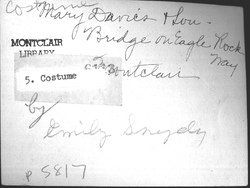 Costume
Mary Davies & Son -
Bridge on Eagle Rock
Way
MONTCLAIR
LIBRARY
Montclair
5. Costume
by
Emily Snyder
p 5817